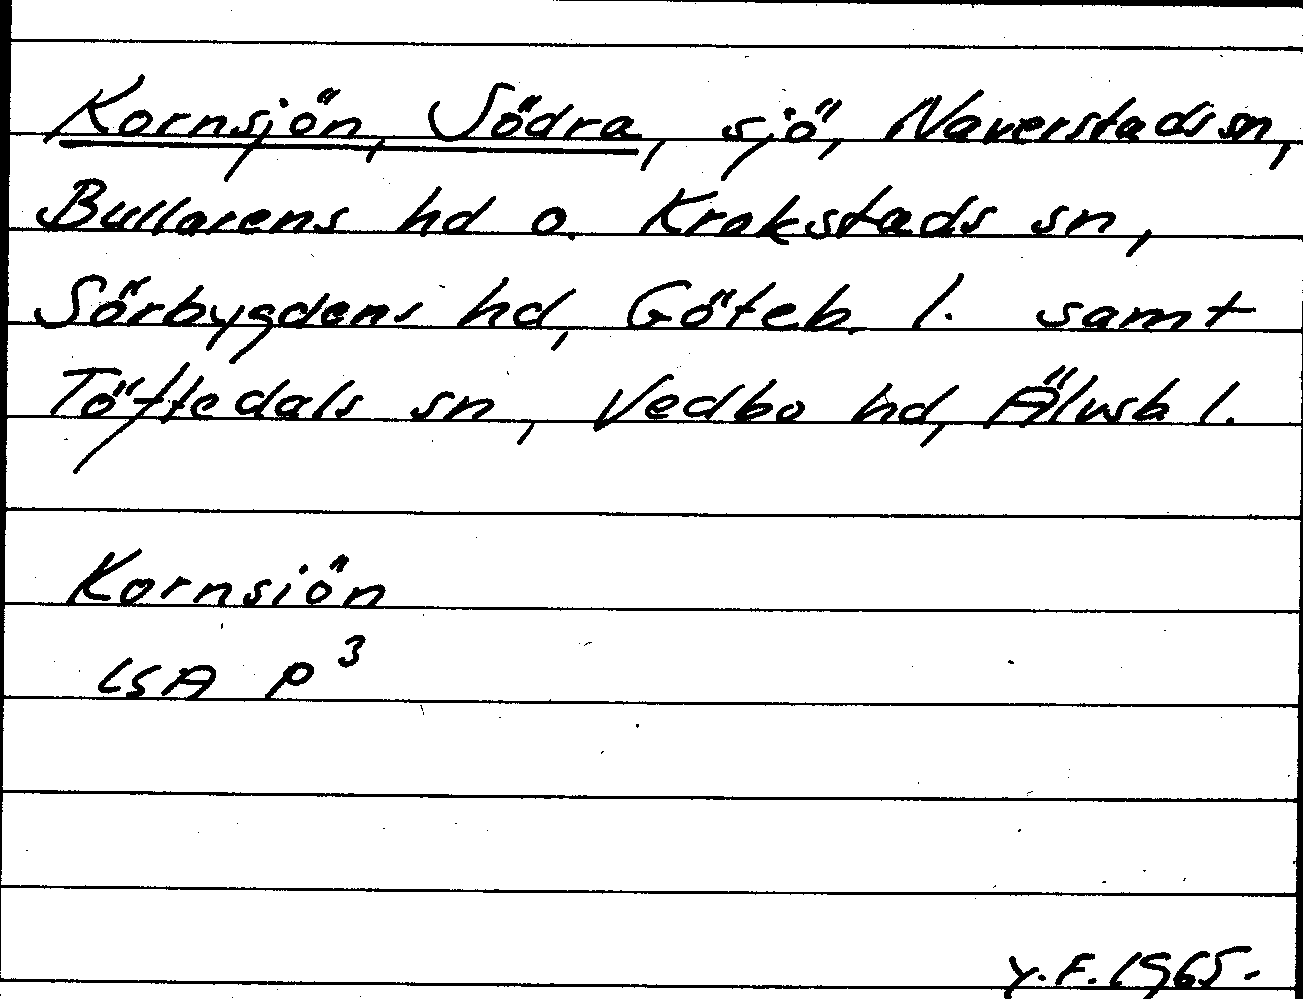 Kornsjön, Södra, sjö, Naverstads sn,
Bullarens hd o. Krokstads sn,
Sörbygdens hd, Göteb. l. samt
Töftedals sn, Vedbo hd, Älvsb l.
Kornsiön
LSA P³
Y.F. 1965.